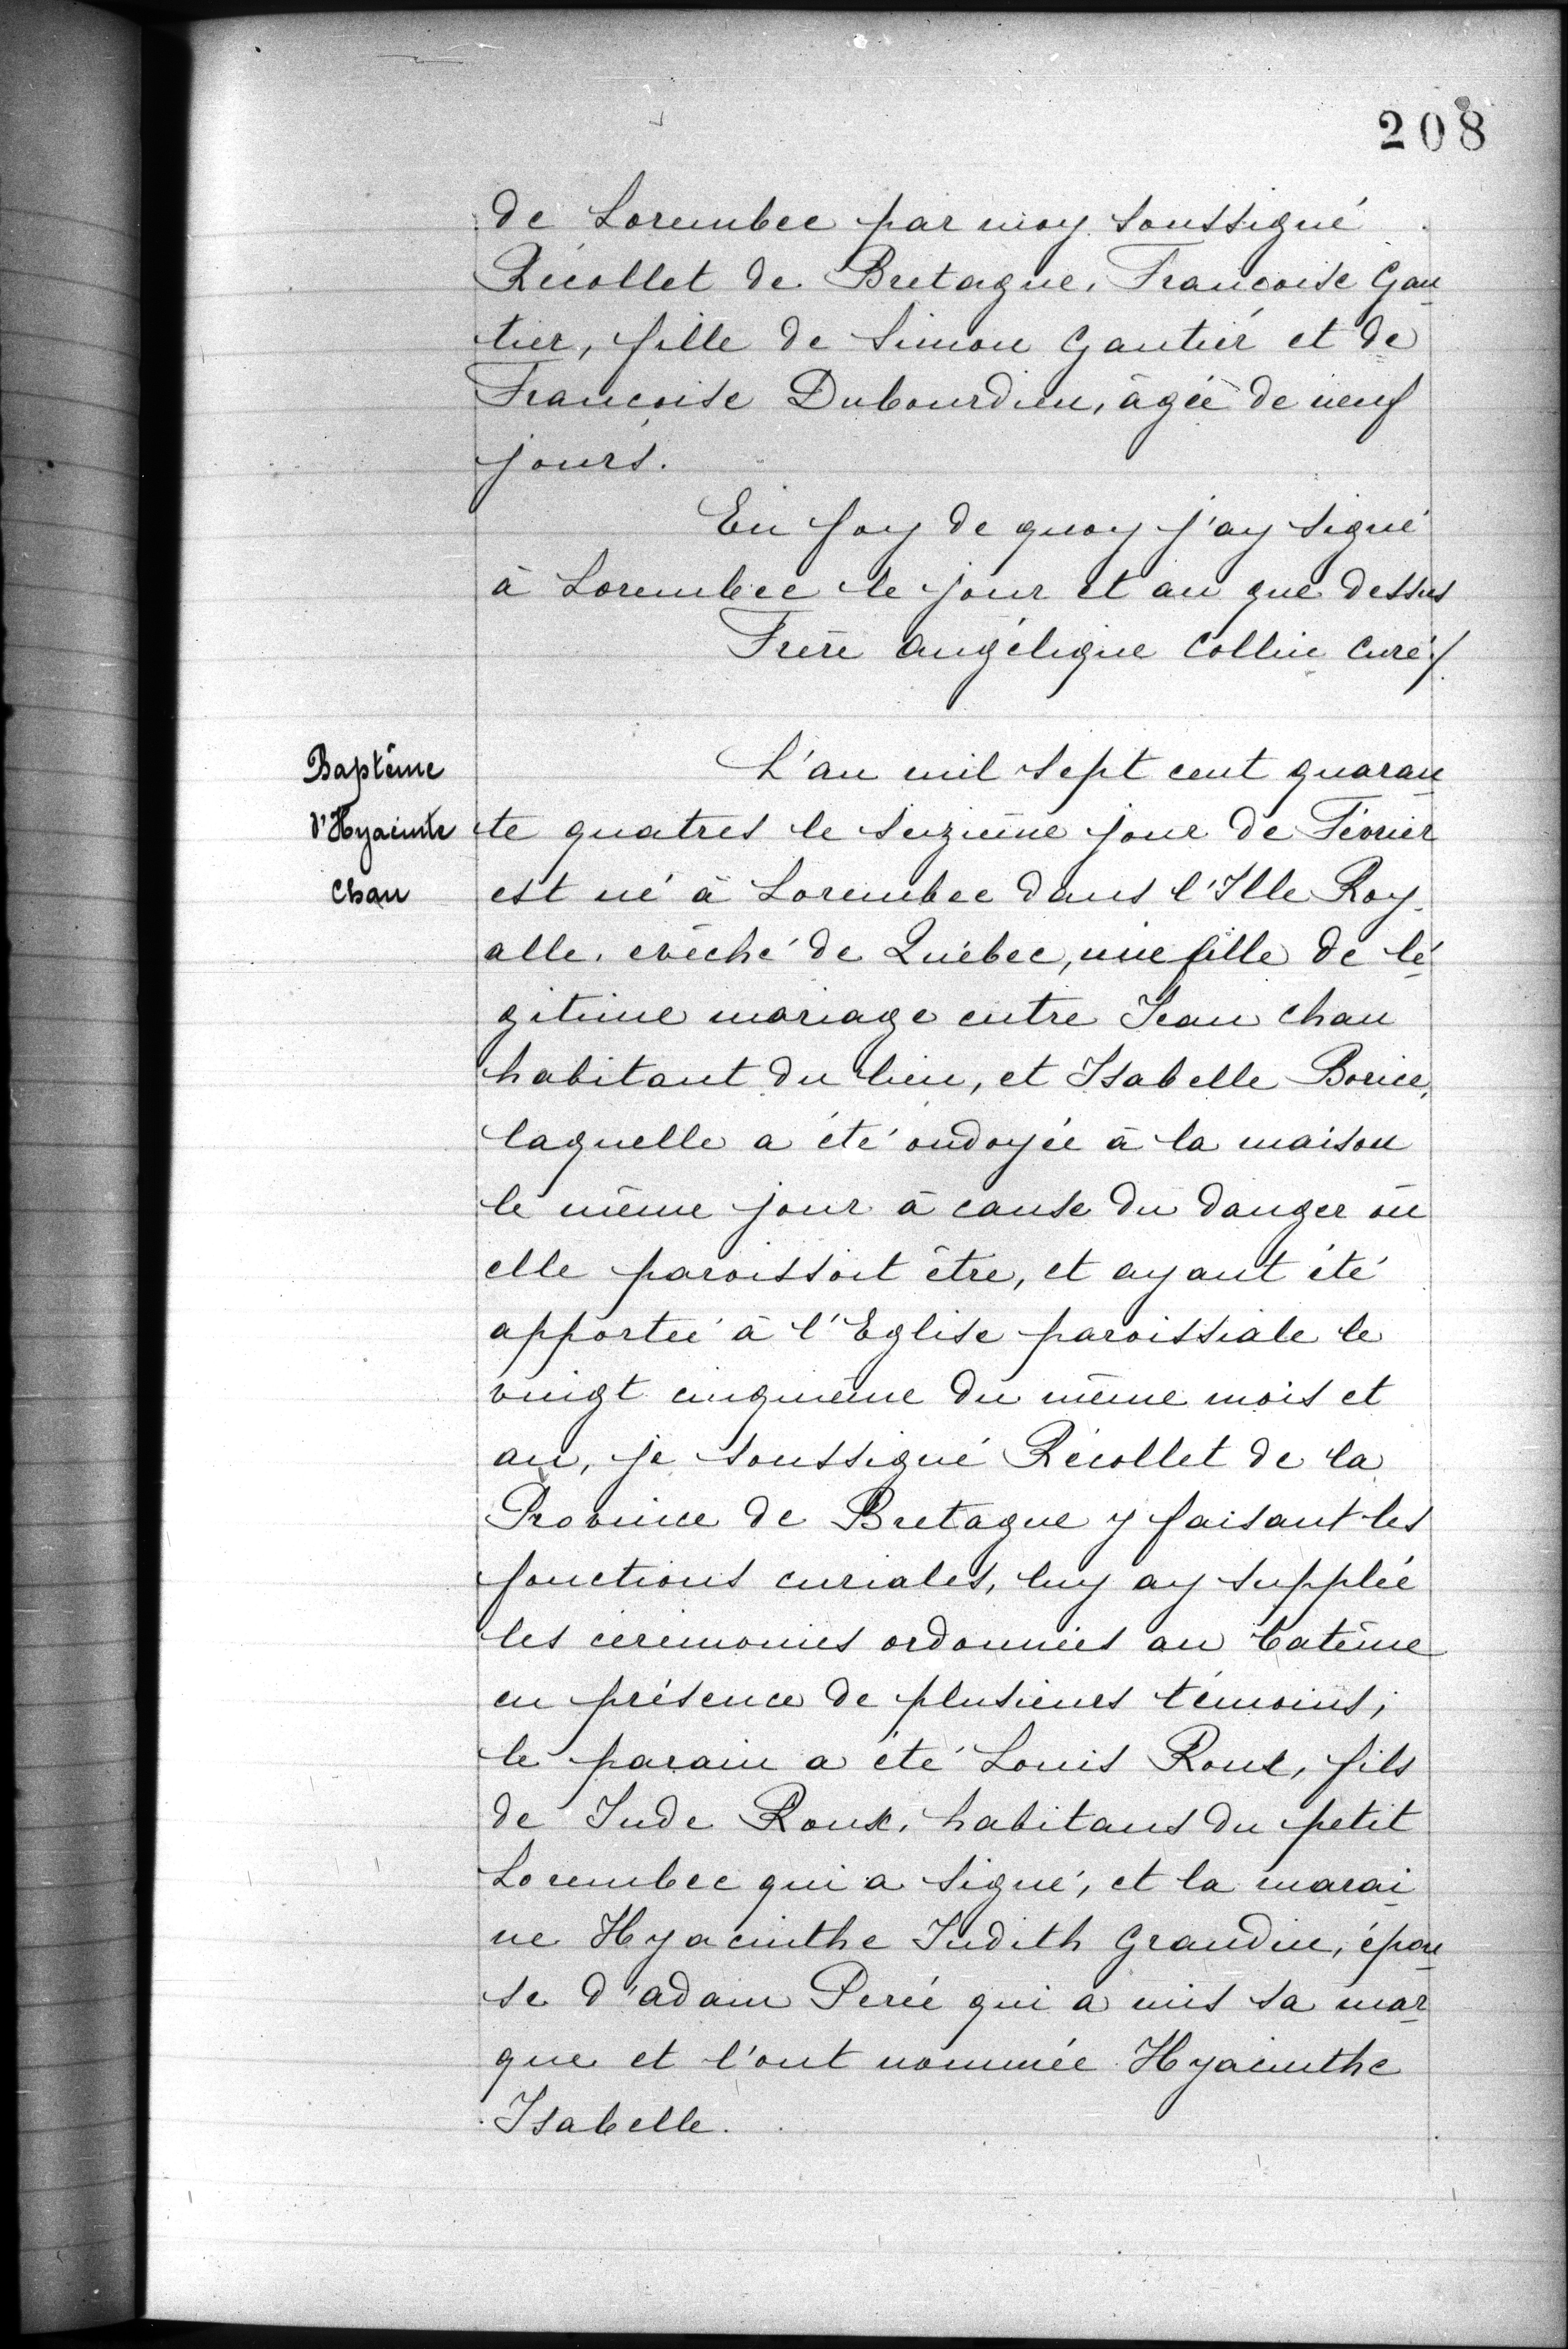 208
de Lorembec par moy soussigné
Récollet de Bretagne, Françoise Gau
tier, fille de Simon Gautier et de
Françoise Dubourdieu, âgée de neuf
jours.
En foy de quoy j'ay signé
à Lorembec le jour et an que dessus
Frère Angélique Collin curé /.
Baptême
d'Hyacinte
Chau
L'an mil sept cent quaran
te quatres le seizième jour de Février
est né à Lorembec dans l'Ille Roy
alle, evêché de Québec, une fille de lé
gitime mariage entre Jean Chau
habitant du lieu, et Isabelle Borice,
laquelle a été ondoyée à la maison
le même jour à cause du danger où
elle paroissoit être, et ayant été
apportée à l'Eglise paroissiale le
vingt cinqnième du même mois et
an, je soussigné Récollet de la
Province de Bretagne y faisant les
fonctions curiales, luy ay supplée
les ceremonies ordonnées au batême
en présence de plusieurs témoins;
le parain a été Louis Roux, fils
de Jude Roux, habitans du petit
Lorembec qui a signé, et la marai
ne Hyacinthe Judith Grandin, épou
se d'adam Perée qui a mis sa mar
que et l'ont nommée Hyacinthe
Isabelle.